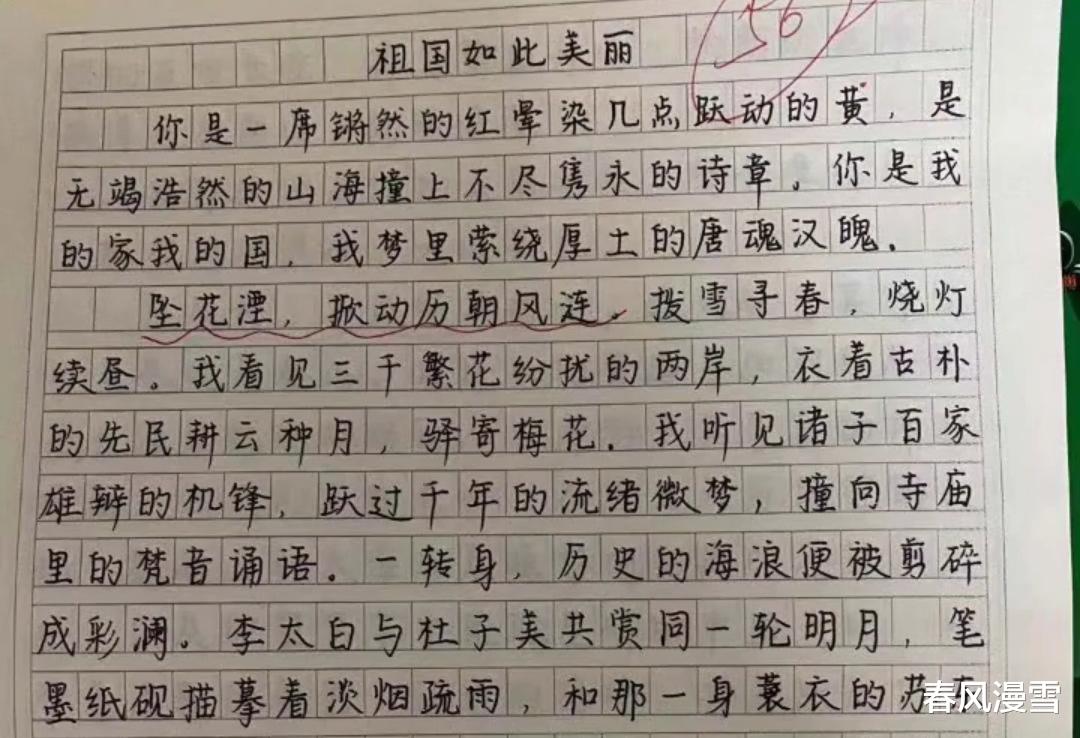 祖国如此美丽
56
你是一席锵然的红晕染几点跃动的黄，是
无竭浩然的山海撞上不尽隽永的诗章。你是我
的家我的国，我梦里萦绕厚土的唐魂汉魄。
坠花湮，掀动历朝风涟。拨雪寻春，烧灯
续昼。我看见三千繁花纷扰的两岸，衣着古朴
的先民耕云种月，驿寄梅花。我听见诸子百家
雄辩的机锋，跃过千年的流绪微梦，撞向寺庙
里的梵音诵语。一转身，历史的海浪便被剪碎
成彩澜。李太白与杜子美共赏同一轮明月，笔
墨纸砚描摹着淡烟疏雨，和那一身蓑衣的苏
春风漫雪